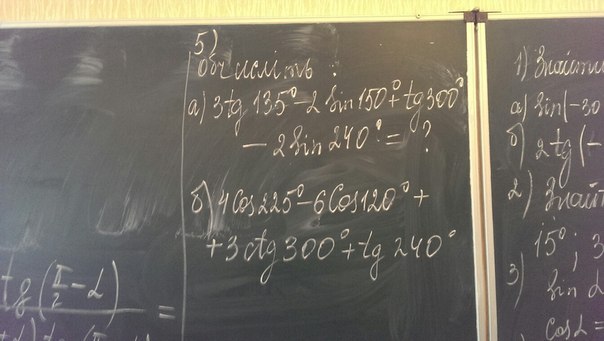 5)
обчисліть :
а) 3tg 135° - 2 sin 150° + tg 300°
- 2 sin 240° = ?
б) 4 cos 225° - 6 cos 120° +
+ 3 ctg 300° + tg 240°
tg (π/2 - α)
=
1) Знайти
а) sin(-30
б) 2 tg (-
2) Знайт
15° ; 3
3) sin α
cos α =